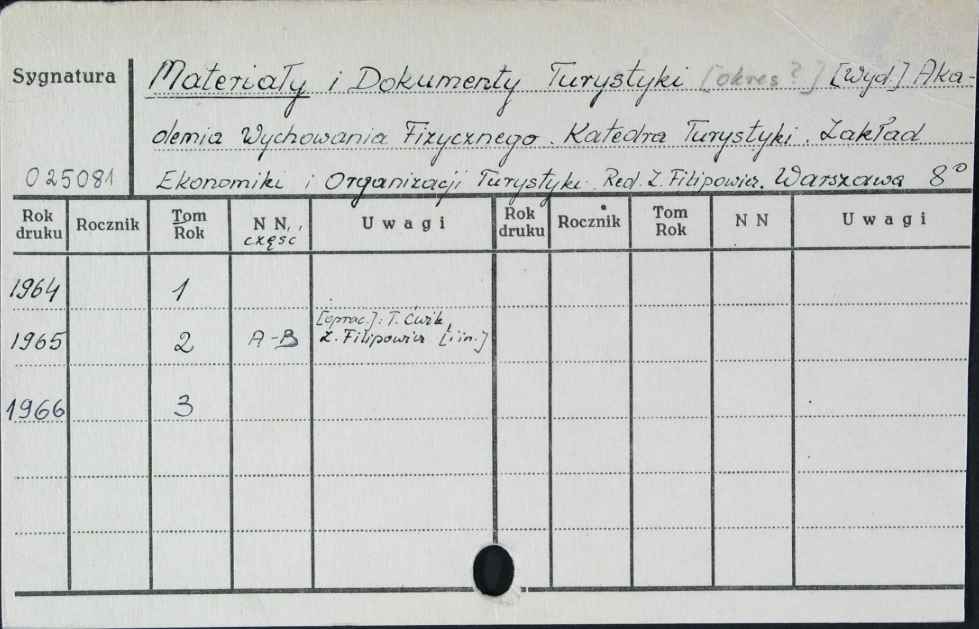 Sygnatura
Materiały i Dokumenty Turystyki [okres?] [Wyd.] Aka-
demia Wychowania Fizycznego. Katedra Turystyki. Zakład
025081 Ekonomiki i Organizacji Turystyki. Red. Z. Filipowicz. Warszawa 8°
Rok druku Rocznik Tom Rok N N, część Uwagi Rok druku Rocznik Tom Rok N N Uwagi
1964 1
1965 2 A-B [oprac.]: T. Ćwik, Z. Filipowicz [i in.]
1966 3